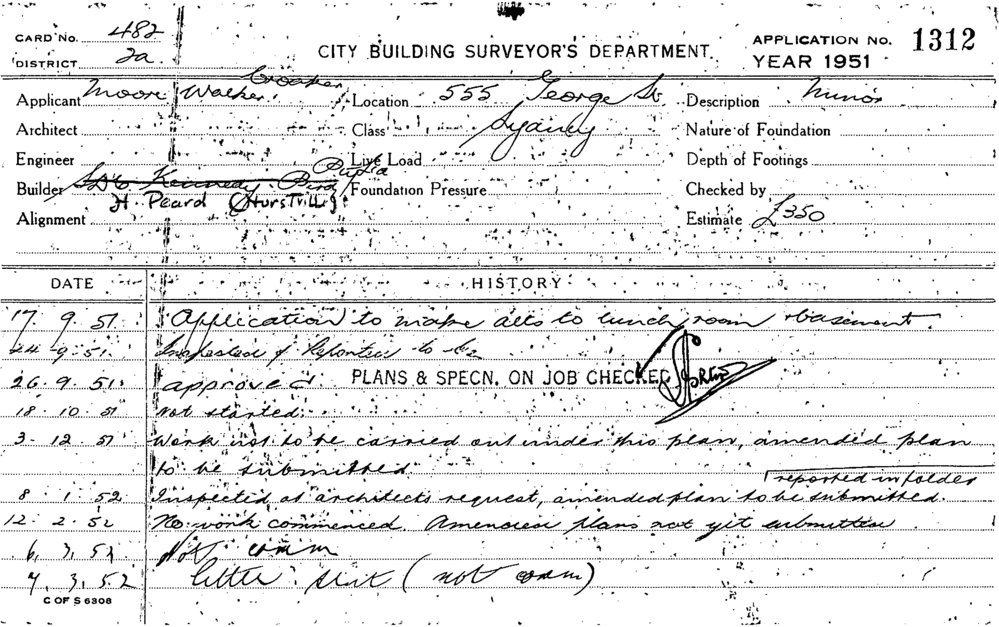 CARD No. 482
DISTRICT 2a
CITY BUILDING SURVEYOR'S DEPARTMENT.
APPLICATION No. 1312
YEAR 1951
Applicant Moore Walker Croaker Location 555 George St Description Minor
Architect Class Sydney Nature of Foundation
Engineer Live Load Depth of Footings
Builder Kennedy Foundation Pressure Checked by
H. Peard
Alignment Estimate £350
DATE HISTORY
17. 9. 51 Application to make alts to lunch room basement.
24. 9. 51. Inspected & Reported to
26. 9. 51. approved PLANS & SPECN. ON JOB CHECKED
18. 10. 51 Not started.
3. 12. 51 Work not to be carried out under this plan, amended plan
to be submitted
reported in folder
8. 1. 52 Inspected at architects request, amended plan to be submitted.
12. 2. 52 No work commenced. Amended plans not yet submitted.
6. 3. 52 Not comm
7. 3. 52 letter sent (not comm)
C OF S 6308